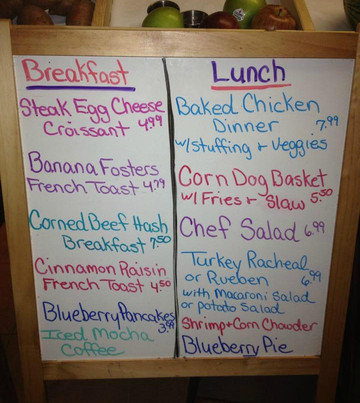 Breakfast
Steak Egg Cheese
Croissant 4.99
Banana Fosters
French Toast 4.79
Corned Beef Hash
Breakfast 7.50
Cinnamon Raisin
French Toast 4.50
Blueberry Pancakes
3.99
Iced Mocha
Coffee
Lunch
Baked Chicken
Dinner 7.99
w/stuffing + Veggies
Corn Dog Basket
w/ Fries + Slaw 5.50
Chef Salad 6.99
Turkey Racheal
or Rueben 6.99
with Macaroni Salad
or potato Salad
Shrimp + Corn Chowder
Blueberry Pie